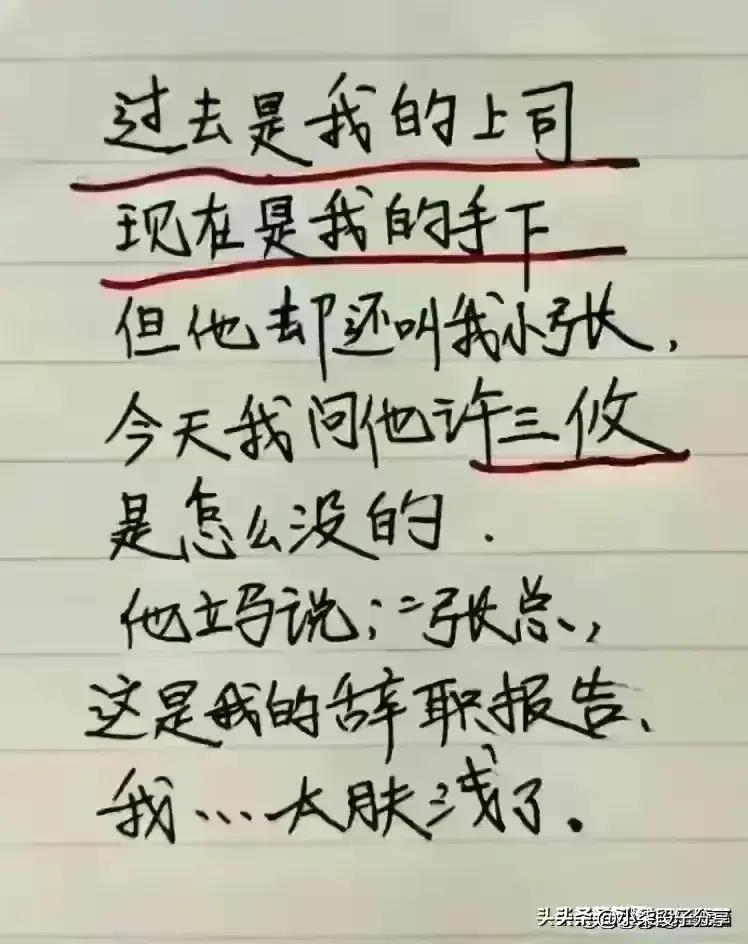 过去是我的上司
现在是我的手下
但他却还叫我小张,
今天我问他许三攸
是怎么没的.
他立马说:"张总,
这是我的辞职报告、
我…太肤浅了。
头条@小柒段子分享